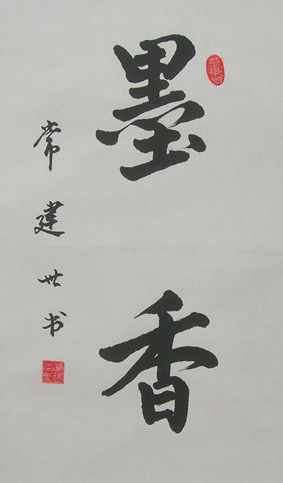 墨香
常建世书